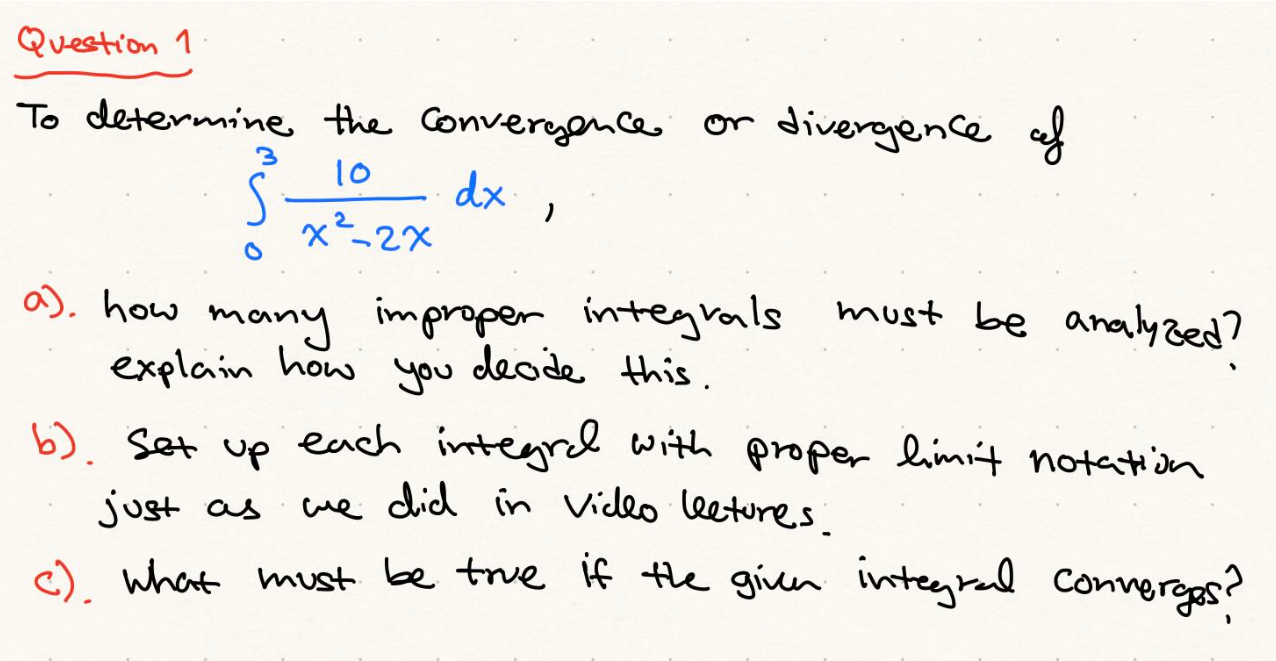 Question 1
To determine the convergence or divergence of
∫₀³ 10/(x²-2x) dx ,
a). how many improper integrals must be analyzed?
explain how you decide this.
b). Set up each integral with proper limit notation
just as we did in video lectures.
c). What must be true if the given integral converges?